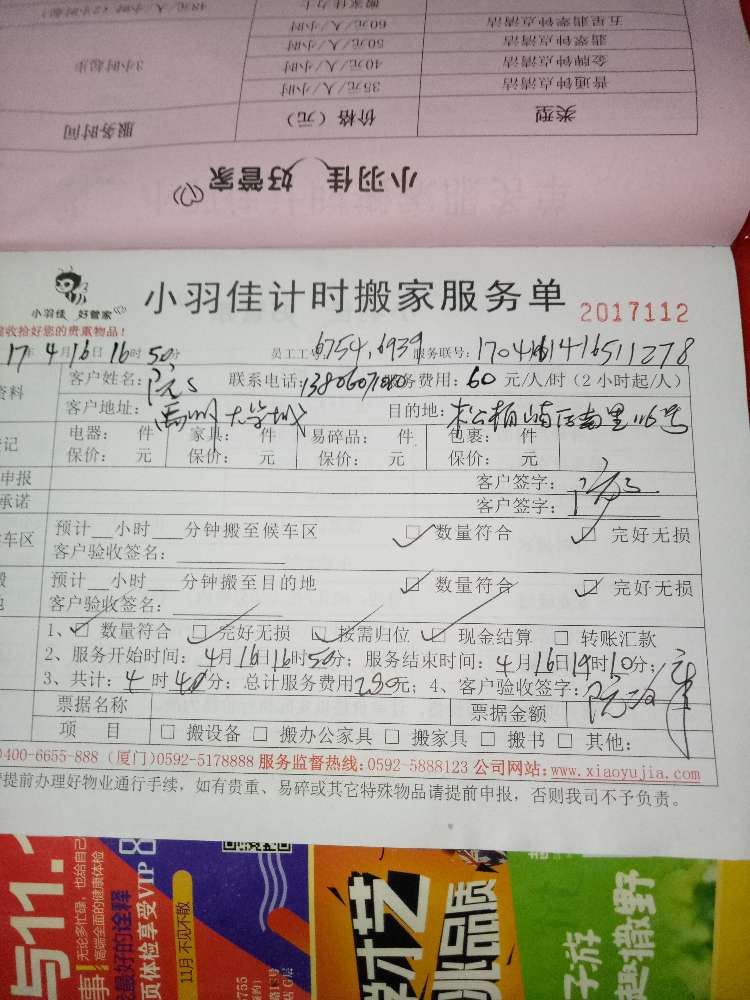 搬家佳力士 48元/人/小时 (2小时起)
五星翡翠钟点清洁 60元/人/小时
翡翠钟点清洁 50元/人/小时
金牌钟点清洁 40元/人/小时 3小时起步
普通钟点清洁 35元/人/小时
类型 价格（元） 服务时间
小羽佳 好管家
小羽佳 好管家
小羽佳计时搬家服务单 2017112
收拾好您的贵重物品！
17年4月16日16时50分 员工工号：6754,6939 服务联号：
资料 客户姓名：阮S 联系电话： 服务费用：60元/人/时（2小时起/人）
客户地址： 大学城 目的地：
登记 电器： 件 家具： 件 易碎品： 件 包裹： 件
保价： 元 保价： 元 保价： 元 保价： 元
申报 客户签字：
承诺 客户签字：
车区 预计__小时___分钟搬至候车区 ☑ 数量符合 ☑ 完好无损
客户验收签名：
预计__小时___分钟搬至目的地 ☑ 数量符合 ☑ 完好无损
地 客户验收签名：
1、☑ 数量符合 ☑ 完好无损 ☑ 按需归位 ☑ 现金结算 □ 转账汇款
2、服务开始时间：4月16日16时50分；服务结束时间：4月16日19时10分；
3、共计：4时40分；总计服务费用280元；4、客户验收签字：
票据名称 票据金额
项 目 □ 搬设备 □ 搬办公家具 □ 搬家具 □ 搬书 □ 其他：
)400-6655-888 (厦门)0592-5178888 服务监督热线：0592-5888123 公司网站：www.xiaoyujia.com
提前办理好物业通行手续，如有贵重、易碎或其它特殊物品请提前申报，否则我司不予负责。
与11.1
无论多忙碌，也给自己
高端全面的健康体检
事！
最好的诠释
页体检享受VIP
11月 不见不散
学才艺
品质
子游
趣撒野